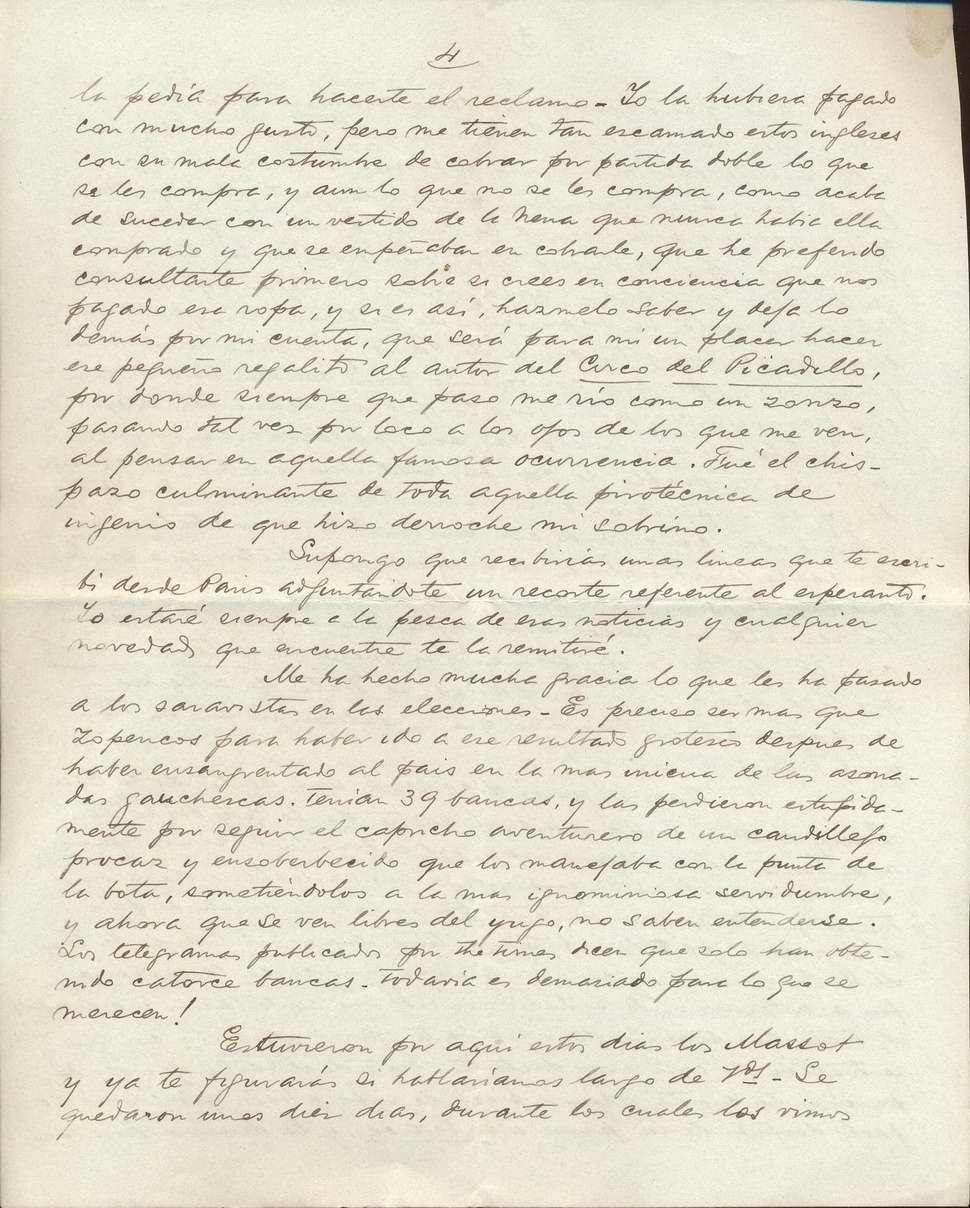 4
la pedía para hacerte el reclamo - Yo la hubiera pagado
con mucho gusto, pero me tienen tan escamado estos ingleses
con su mala costumbre de cobrar por partida doble lo que
se les compra, y aun lo que no se les compra, como acaba
de suceder con un vestido de la Nena que nunca habia ella
comprado y que se empeñaban en cobrarle, que he preferido
consultarte primero sobre si crees en conciencia que nos
pagado esa ropa, y si es así, hazmelo saber y deja lo
demás por mi cuenta, que será para mi un placer hacer
ese pequeño regalito al autor del Circo del Picadillo,
por donde siempre que paso me rio como un zonzo,
pasando tal vez por loco a los ojos de los que me ven,
al pensar en aquella famosa ocurrencia. Fué el chis-
pazo culminante de toda aquella pirotécnica de
ingenio de que hizo derroche mi sobrino.
Supongo que recibirias unas lineas que te escri-
bi desde Paris adjuntándote un recorte referente al esperanto.
Yo estaré siempre a la pesca de esas noticias y cualquier
novedad que encuentre te la remitiré.
Me ha hecho mucha gracia lo que les ha pasado
a los saravistas en las elecciones - Es preciso ser mas que
zopencos para haber ido a ese resultado grotesco despues de
haber ensangrentado al pais en la mas inicua de las asona-
das gauchescas. Tenian 39 bancas, y las perdieron estupida-
mente por seguir el capricho aventurero de un caudillejo
procaz y ensoberbecido que los manejaba con la punta de
la bota, sometiéndolos a la mas ignominiosa servidumbre,
y ahora que se ven libres del yugo, no saben entenderse.
Los telegramas publicados por the times dicen que solo han obte-
nido catorce bancas - Todavia es demasiado para lo que se
merecen!
Estuvieron por aqui estos dias los Massot
y ya te figurarás si hablaríamos largo de Vds - Se
quedaron unos diez dias, durante los cuales los vimos